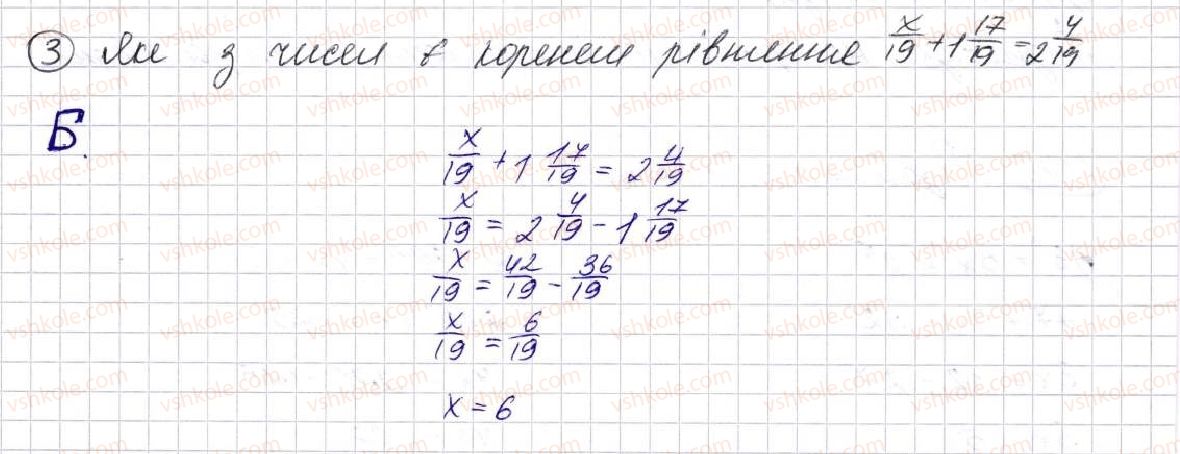 ③ Яке з чисел є коренем рівняння x/19 + 1 17/19 = 2 4/19
Б.
x/19 + 1 17/19 = 2 4/19
x/19 = 2 4/19 - 1 17/19
x/19 = 42/19 - 36/19
x/19 = 6/19
x = 6
vshkole.com